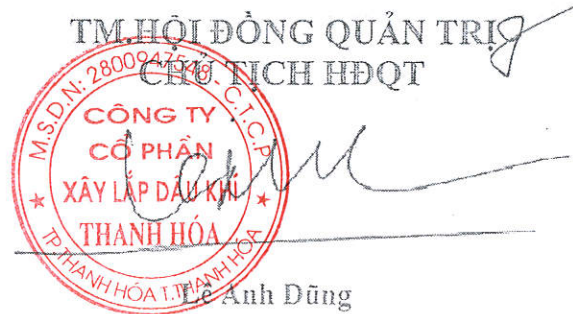 TM.HỘI ĐỒNG QUẢN TRỊ
CHỦ TỊCH HĐQT
M.S.D.N: 2800947548 - C.T.C.P
CÔNG TY
CỔ PHẦN
XÂY LẮP DẦU KHÍ
THANH HÓA
TP.THANH HÓA T.THANH HÓA
Lê Anh Dũng